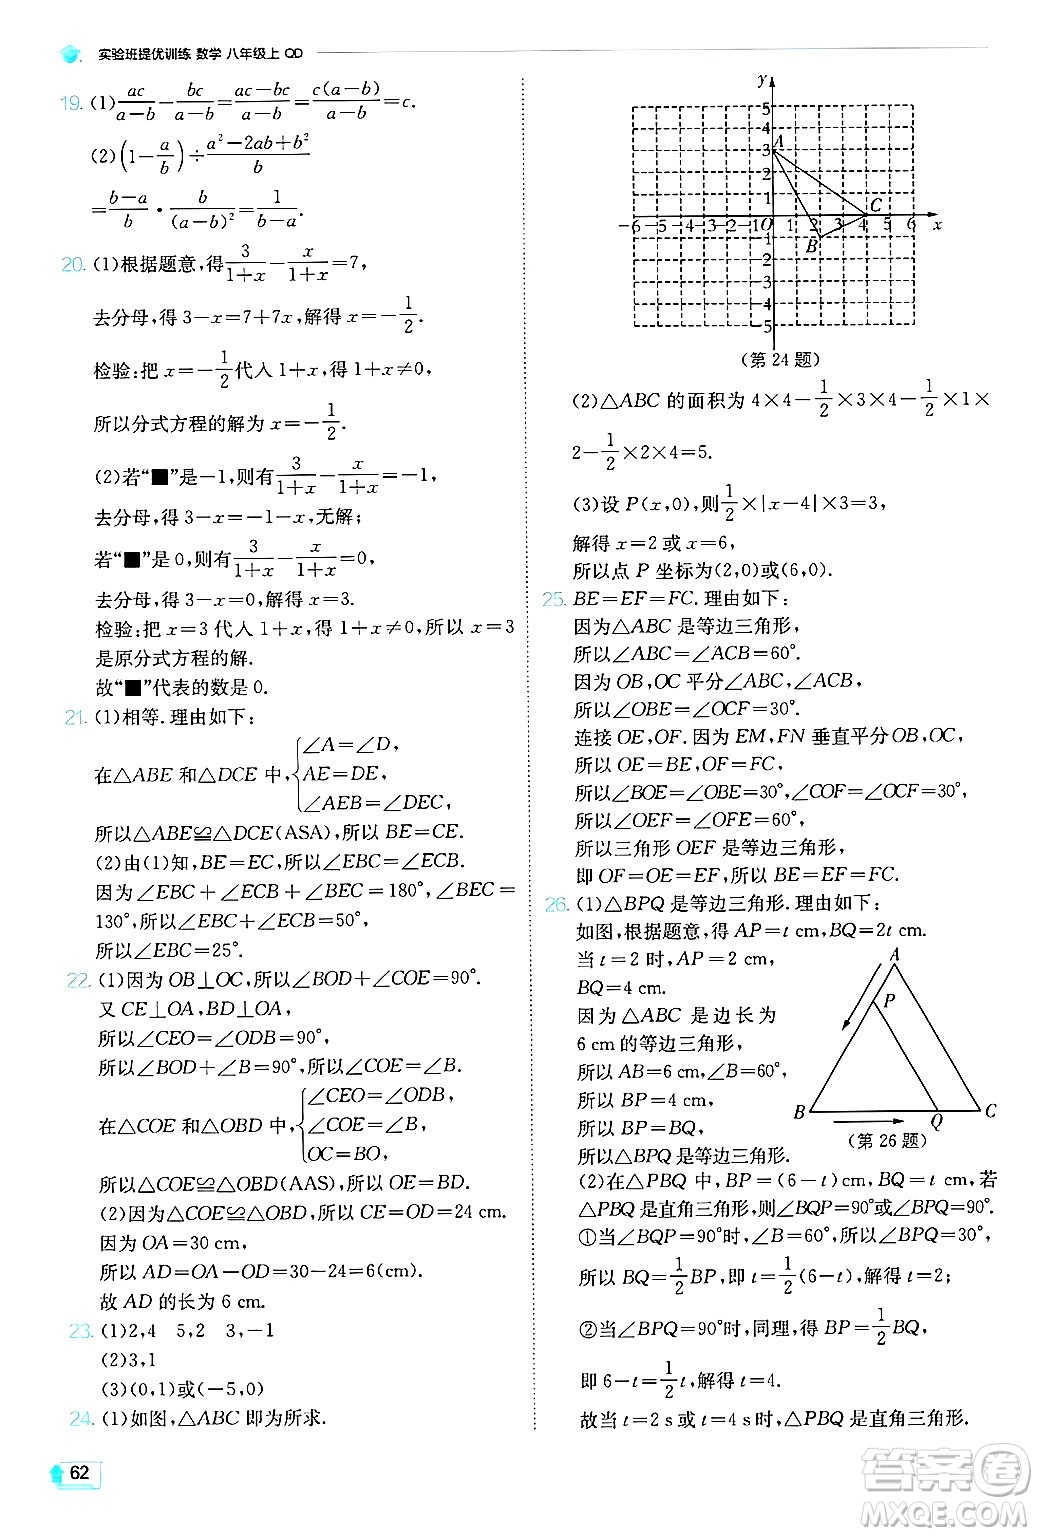 实验班提优训练 数学 八年级上 QD
19. (1) ac/(a−b) − bc/(a−b) = (ac−bc)/(a−b) = c(a−b)/(a−b) = c.
(2) (1−a/b) ÷ (a²−2ab+b²)/b
= (b−a)/b · b/(a−b)² = 1/(b−a).
20. (1)根据题意,得 3/(1+x) − x/(1+x) = 7,
去分母,得 3−x=7+7x,解得 x=−1/2.
检验:把 x=−1/2 代入 1+x,得 1+x≠0,
所以分式方程的解为 x=−1/2.
(2)若“■”是−1,则有 3/(1+x) − x/(1+x) = −1,
去分母,得 3−x=−1−x,无解;
若“■”是 0,则有 3/(1+x) − x/(1+x) = 0,
去分母,得 3−x=0,解得 x=3.
检验:把 x=3 代入 1+x,得 1+x≠0,所以 x=3
是原分式方程的解.
故“■”代表的数是 0.
21. (1)相等.理由如下:
在△ABE 和△DCE 中,{∠A=∠D,
AE=DE,
∠AEB=∠DEC,
所以△ABE≌△DCE(ASA),所以 BE=CE.
(2)由(1)知,BE=EC,所以∠EBC=∠ECB.
因为∠EBC+∠ECB+∠BEC=180°,∠BEC=
130°,所以∠EBC+∠ECB=50°,
所以∠EBC=25°.
22. (1)因为 OB⊥OC,所以∠BOD+∠COE=90°.
又 CE⊥OA,BD⊥OA,
所以∠CEO=∠ODB=90°,
所以∠BOD+∠B=90°,所以∠COE=∠B.
在△COE 和△OBD 中,{∠CEO=∠ODB,
∠COE=∠B,
OC=BO,
所以△COE≌△OBD(AAS),所以 OE=BD.
(2)因为△COE≌△OBD,所以 CE=OD=24 cm.
因为 OA=30 cm,
所以 AD=OA−OD=30−24=6(cm).
故 AD 的长为 6 cm.
23. (1)2,4 5,2 3,−1
(2)3,1
(3)(0,1)或(−5,0)
24. (1)如图,△ABC 即为所求.
62
y
5
4
A
3
2
1
C
−6−5−4−3−2−1O 1 2 3 4 5 6 x
B
−1
−3
−4
−5
(第 24 题)
(2)△ABC 的面积为 4×4−1/2×3×4−1/2×1×
2−1/2×2×4=5.
(3)设 P(x,0),则 1/2×|x−4|×3=3,
解得 x=2 或 x=6,
所以点 P 坐标为(2,0)或(6,0).
25. BE=EF=FC.理由如下:
因为△ABC 是等边三角形,
所以∠ABC=∠ACB=60°.
因为 OB,OC 平分∠ABC,∠ACB,
所以∠OBE=∠OCF=30°.
连接 OE,OF.因为 EM,FN 垂直平分 OB,OC,
所以 OE=BE,OF=FC.
所以∠BOE=∠OBE=30°,∠COF=∠OCF=30°,
所以∠OEF=∠OFE=60°,
所以三角形 OEF 是等边三角形,
即 OF=OE=EF,所以 BE=EF=FC.
26. (1)△BPQ 是等边三角形.理由如下:
如图,根据题意,得 AP=t cm,BQ=2t cm.
当 t=2 时,AP=2 cm,
BQ=4 cm.
因为△ABC 是边长为
6 cm的等边三角形,
所以 AB=6 cm,∠B=60°,
所以 BP=4 cm,
所以 BP=BQ,
所以△BPQ 是等边三角形.
A
P
B
Q
C
(第 26 题)
(2)在△PBQ 中,BP=(6−t)cm,BQ=t cm,若
△PBQ是直角三角形,则∠BQP=90°或∠BPQ=90°.
①当∠BQP=90°时,∠B=60°,所以∠BPQ=30°,
所以 BQ=1/2BP,即 t=1/2(6−t),解得 t=2;
②当∠BPQ=90°时,同理,得 BP=1/2BQ,
即 6−t=1/2t,解得 t=4.
故当 t=2 s或 t=4 s时,△PBQ 是直角三角形.
答案圈
MXQE.COM